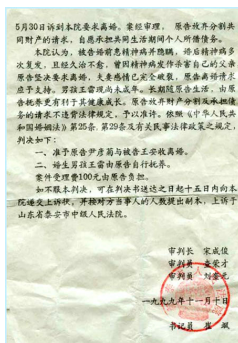 5月30日诉到本院要求离婚。案经审理，原告放弃分割共
同财产的请求，自愿承担共同生活期间个人所借债务。
本院认为，被告婚前患精神病并隐瞒，婚后精神病多
次复发，且经久治不愈，曾因精神病发作杀害自己的父亲
原告坚决要求离婚，夫妻感情已完全破裂，原告离婚请求
应予支持。男孩王雷现尚未成年，长期随原告生活，由原
告抚养更有利于其健康成长。原告放弃财产分割及承担债
务的请求不违背法律规定，予以准许。依照《中华人民共
和国婚姻法》第25条、第29条及有关民事法律政策之规定，
判决如下：
一、准予原告尹彦菊与被告王安收离婚。
二、婚生男孩王雷由原告自行抚养。
案件受理费100元由原告负担。
如不服本判决，可在判决书送达之日起十五日内向本
院递交上诉状，并按对方当事人的人数提出副本，上诉于
山东省泰安市中级人民法院。
审判长 宋成俊
审判员 查荣才
审判员 刘
一九九九年十一月十日
书记员 崔